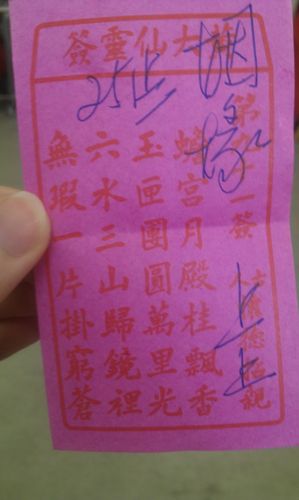 大仙靈簽
一簽
蟾宮月殿桂飄香
玉匣團圓萬里光
六水三山歸鏡裡
無瑕一片掛窮蒼
姻緣
25
上上